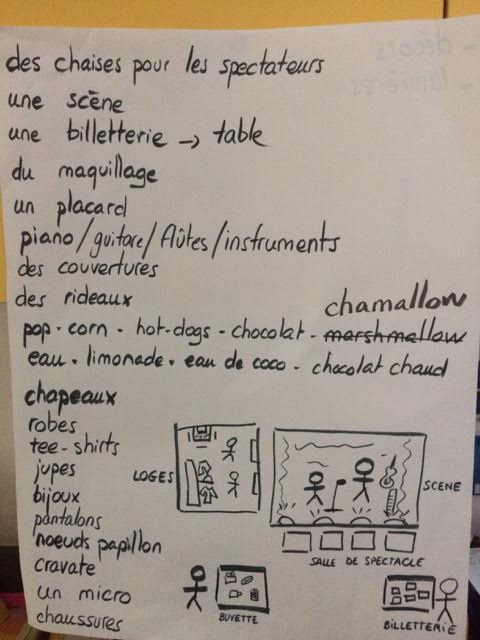 des chaises pour les spectateurs
une scène
une billetterie → table
du maquillage
un placard
piano/guitare/flûtes/instruments
des couvertures
des rideaux
chamallow
pop-corn - hot-dogs - chocolat - marshmallow
eau. limonade. eau de coco - chocolat chaud
chapeaux
robes
tee-shirts
jupes
bijoux
pantalons
noeuds papillon
cravate
un micro
chaussures
LOGES
SCENE
SALLE DE SPECTACLE
BUVETTE
BILLETTERIE
- décors
- lumières